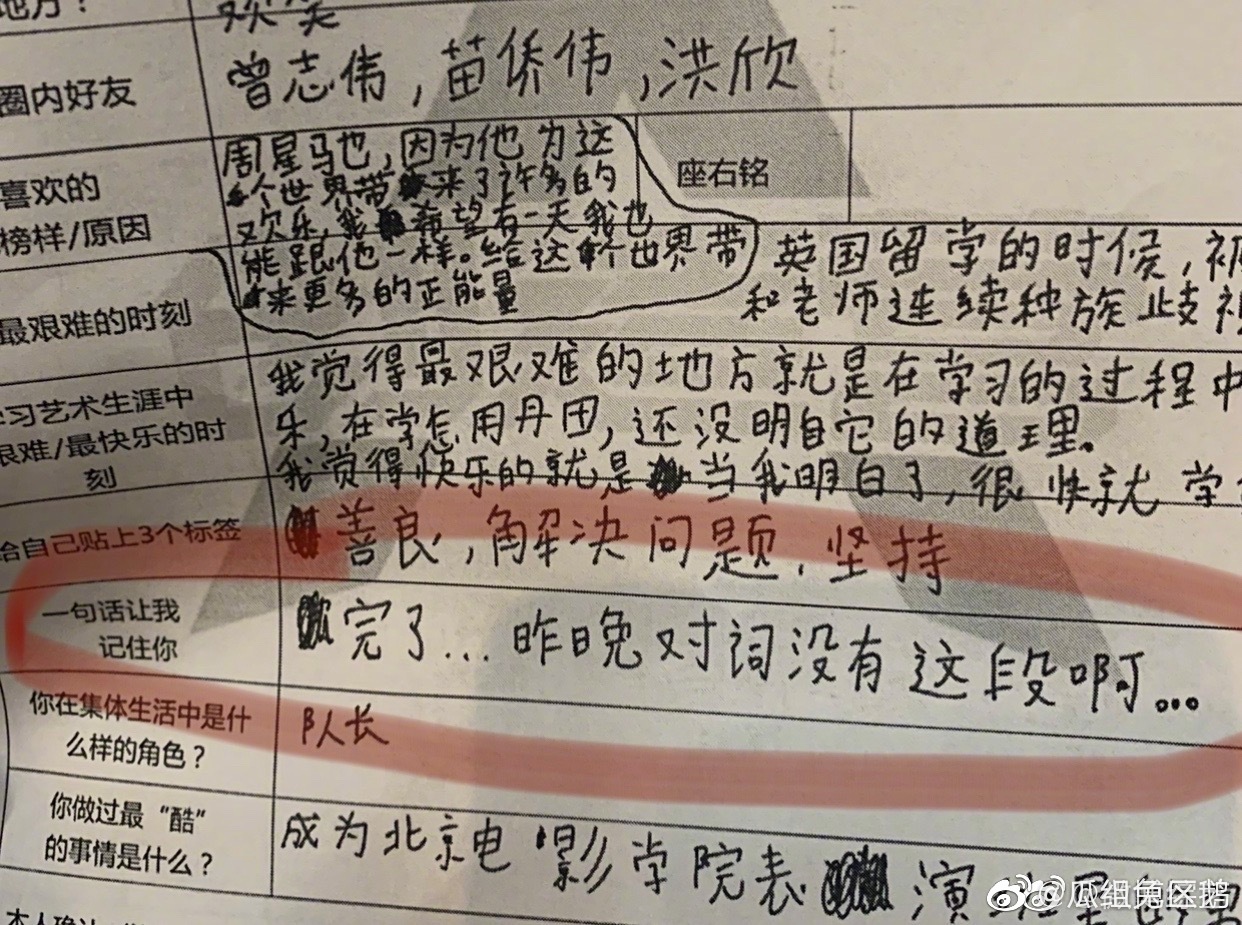 地方？
欢笑
圈内好友
曾志伟，苗侨伟，洪欣
喜欢的
榜样/原因
周星马也，因为他为这
个世界带来了许多的
欢乐，我希望有一天我也
能跟他一样。给这个世界带
来更多的正能量
座右铭
最艰难的时刻
英国留学的时候，被
和老师连续种族歧视
学习艺术生涯中
艰难/最快乐的时
刻
我觉得最艰难的地方就是在学习的过程中
乐，在学怎用丹田，还没明白它的道理。
我觉得快乐的就是当我明白了，很快就学
给自己贴上3个标签
善良，解决问题，坚持
一句话让我
记住你
完了...昨晚对词没有这段啊...
你在集体生活中是什
么样的角色？
队长
你做过最“酷”
的事情是什么？
成为北京电影学院表演班
本人确认
@瓜组兔区鹅